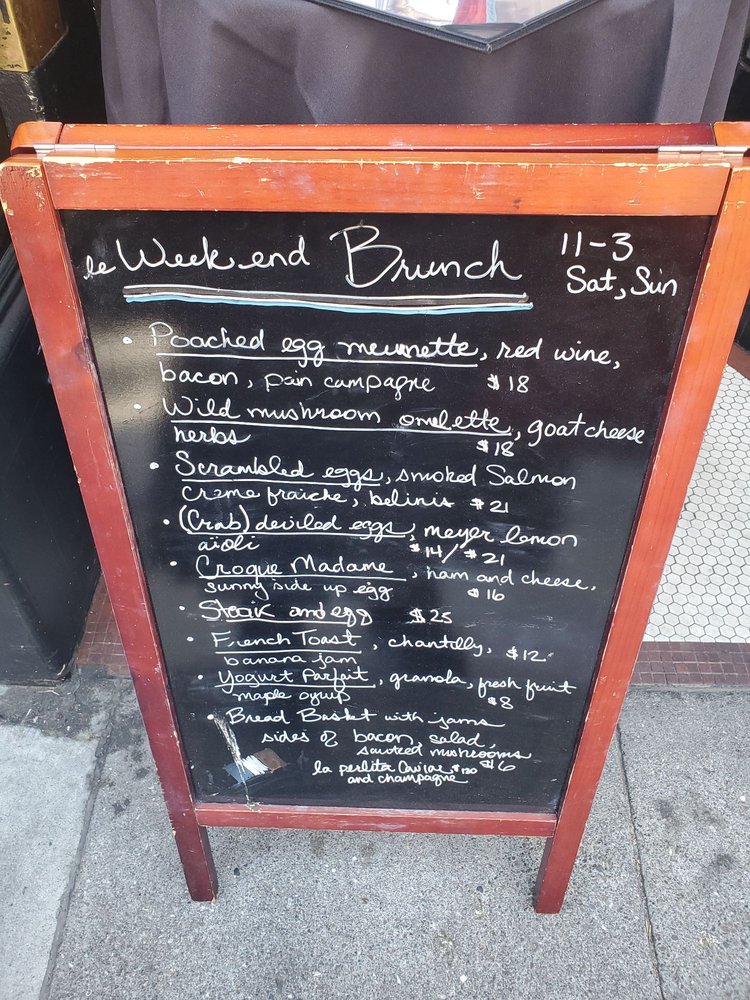 le Weekend Brunch 11-3
Sat, Sun
• Poached egg meurnette, red wine,
bacon, pain campagne $18
• Wild mushroom omelette, goat cheese
herbs $18
• Scrambled eggs, smoked Salmon
creme fraiche, belinis $21
• (Crab) deviled eggs, meyer lemon
aïoli $14/$21
• Croque Madame, ham and cheese,
sunny side up egg $16
• Steak and egg $25
• French Toast, chantilly, $12
banana jam
• Yogurt Parfait, granola, fresh fruit
maple syrup $8
• Bread Basket with jams
sides of bacon, salad,
smoked mushrooms
$6
la perlita Caviar $130
and champagne